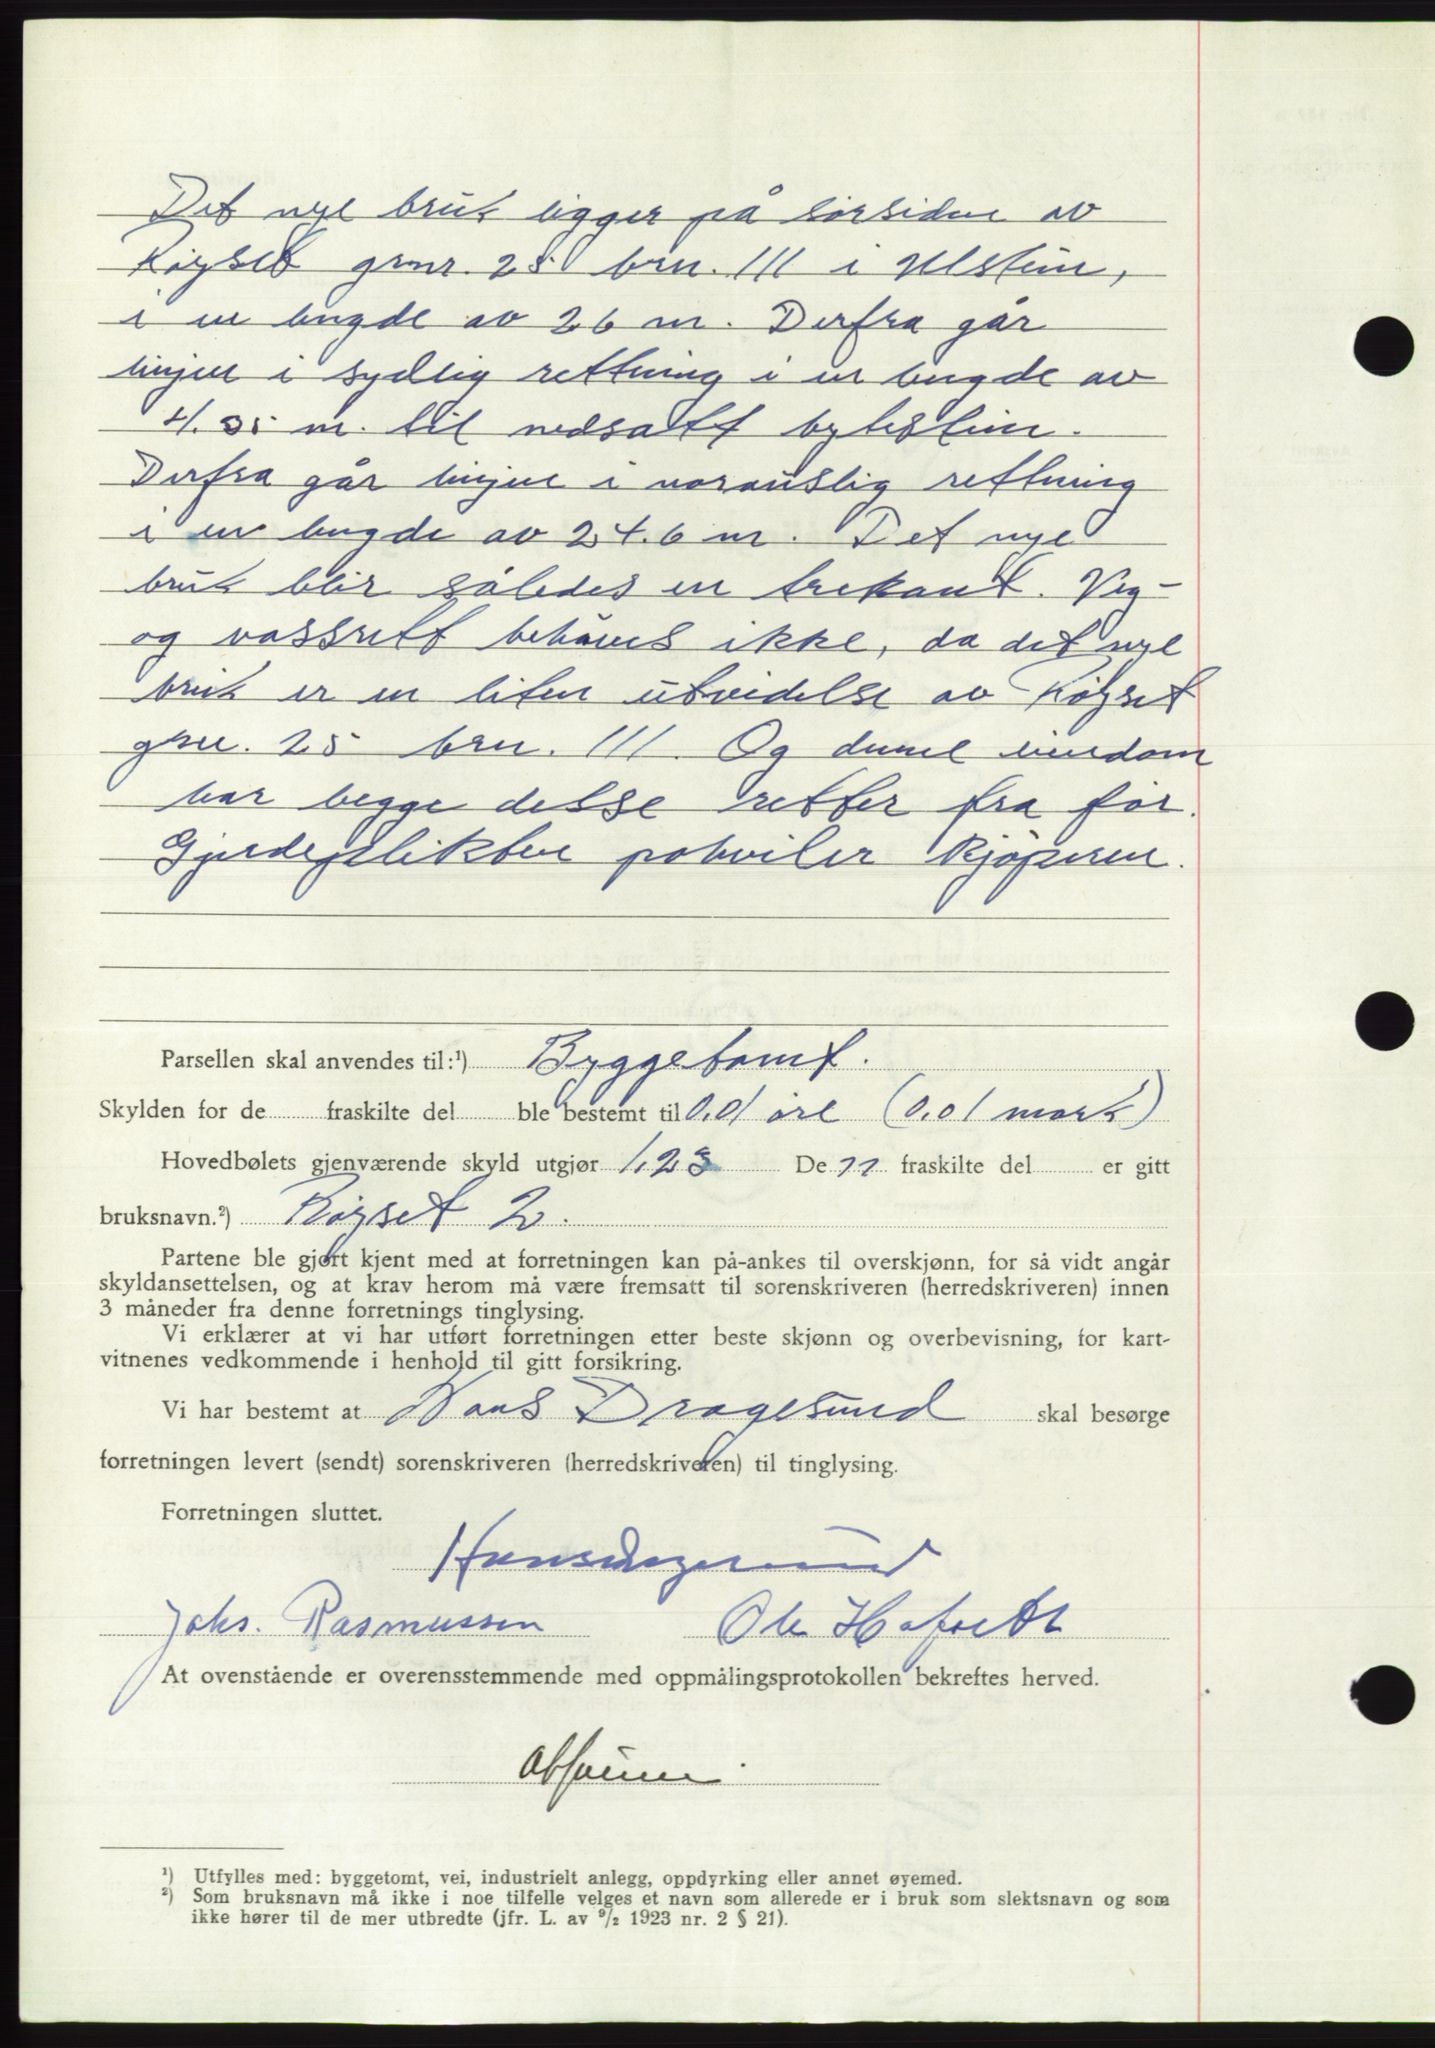 Det nye bruk ligger på sørsiden av
Røyset grnr. 25 brn. 111 i Ulstein,
i en lengde av 26 m. Derfra går
linjen i sydlig rettning i en lengde av
4.05 m. til nedsatt bytestein.
Derfra går linjen i noraustlig rettning
i en lengde av 24.6 m. Det nye
bruk blir således en trekant. Veg-
og vassrett behøves ikke, da det nye
bruk er en liten utvidelse av Røyset
gnr. 25 brn. 111. Og denne eiendom
har begge desse retter fra før.
Gjerdeplikten påhviler kjøperen.
Parsellen skal anvendes til:¹) Byggetomt.
Skylden for de fraskilte del ble bestemt til 0,01 øre (0,01 mark)
Hovedbølets gjenværende skyld utgjør 1,23 De fraskilte del er gitt
bruksnavn.²) Røyset 2.
Partene ble gjort kjent med at forretningen kan på-ankes til overskjønn, for så vidt angår
skyldansettelsen, og at krav herom må være fremsatt til sorenskriveren (herredskriveren) innen
3 måneder fra denne forretnings tinglysing.
Vi erklærer at vi har utført forretningen etter beste skjønn og overbevisning, for kart-
vitnenes vedkommende i henhold til gitt forsikring.
Vi har bestemt at Hans Dragesund skal besørge
forretningen levert (sendt) sorenskriveren (herredskriveren) til tinglysing.
Forretningen sluttet.
Hans Dragesund
Johs. Rasmussen Ole
At ovenstående er overensstemmende med oppmålingsprotokollen bekreftes herved.
¹) Utfylles med: byggetomt, vei, industrielt anlegg, oppdyrking eller annet øyemed.
²) Som bruksnavn må ikke i noe tilfelle velges et navn som allerede er i bruk som slektsnavn og som
ikke hører til de mer utbredte (jfr. L. av 9/2 1923 nr. 2 § 21).